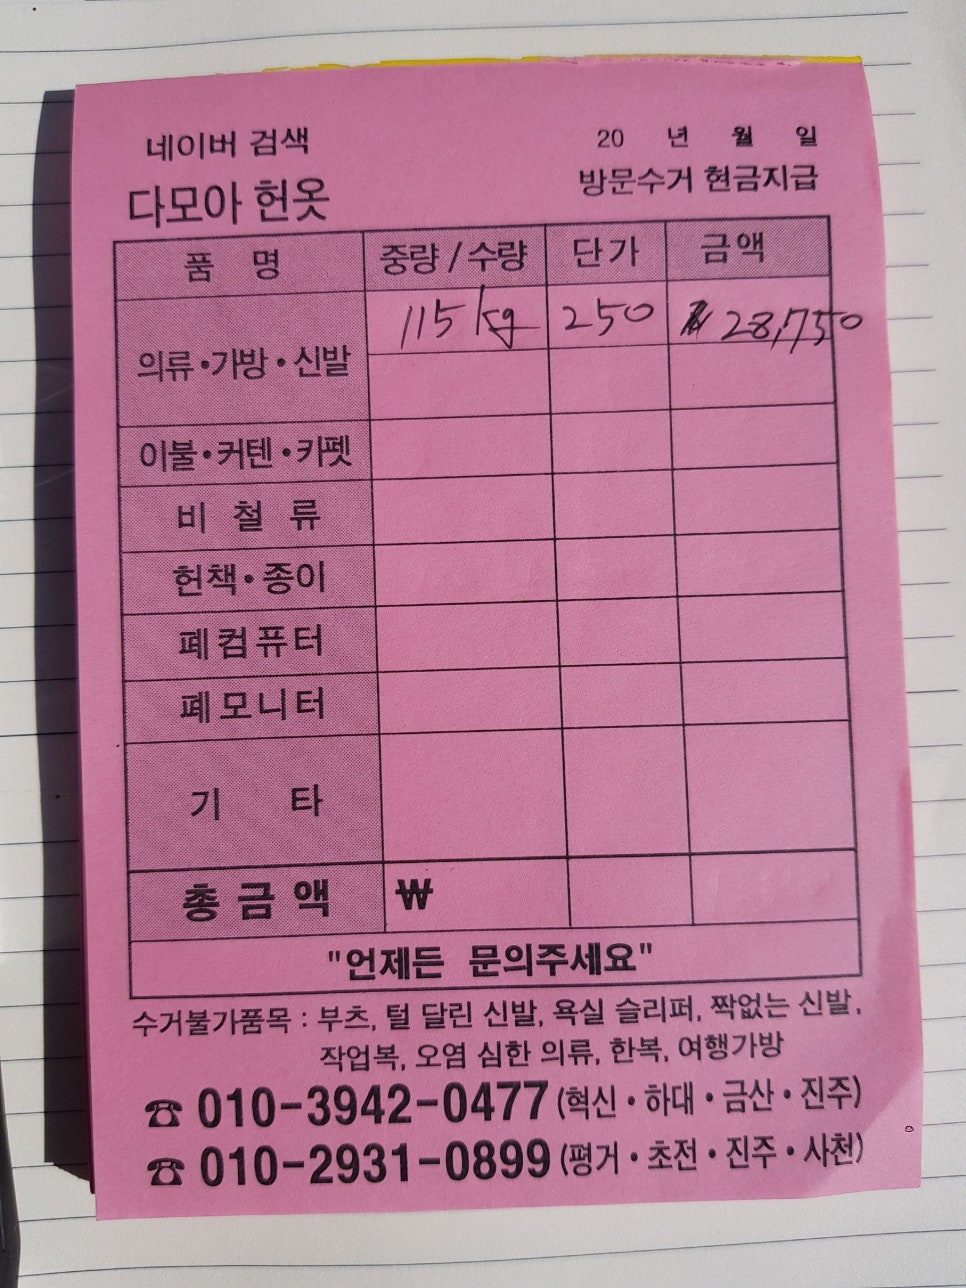 네이버 검색
20 년 월 일
다모아 헌옷
방문수거 현금지급
품 명 중량/수량 단가 금액
의류·가방·신발 115kg 250 28,750
이불·커텐·카펫
비 철 류
헌책·종이
폐컴퓨터
폐모니터
기 타
총금액 ₩
"언제든 문의주세요"
수거불가품목 : 부츠, 털 달린 신발, 욕실 슬리퍼, 짝없는 신발,
작업복, 오염 심한 의류, 한복, 여행가방
☎ 010-3942-0477 (혁신·하대·금산·진주)
☎ 010-2931-0899 (평거·초전·진주·사천)